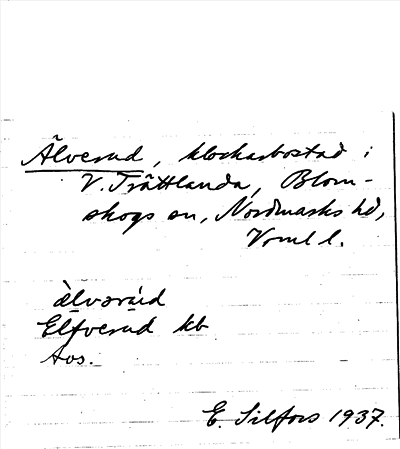 Älverud, klockarbostad i
V. Trättlanda, Blom-
skogs sn, Nordmarks hd,
Vrml l.
älvərúd
Elfverud kb
Avs.
E. Silfors 1937.